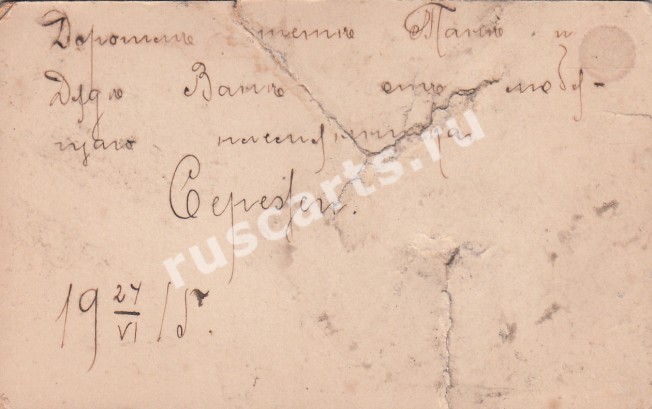 Дорогимъ тетѣ Танѣ и
Дядѣ Ванѣ отъ любя-
щаго племянника
Сережи.
19 24/VI 15.
ruscarts.ru